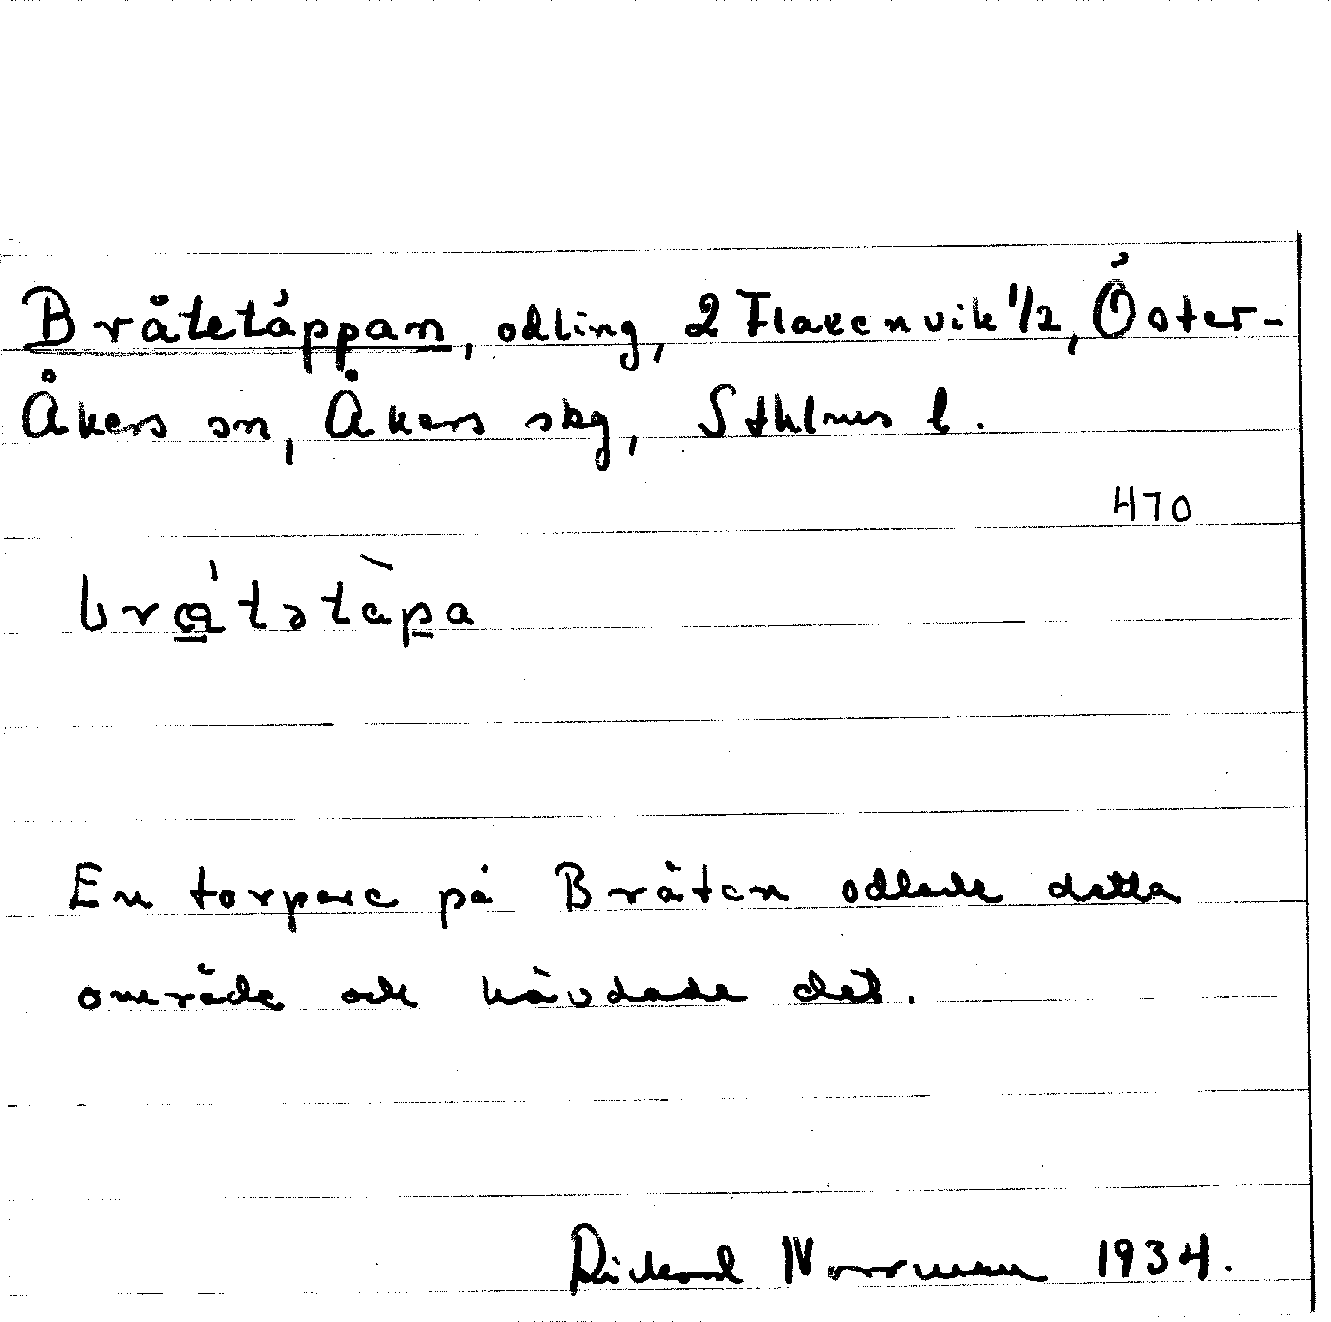 Bråtetäppan, odling, 2 Flaxenvik 1/2, Öster-
Åkers sn, Åkers skg, Sthlms l.
470
brátətàpa
En torpare på Bråten odlade detta
område och hävdade det.
Rickard Norrman 1934.